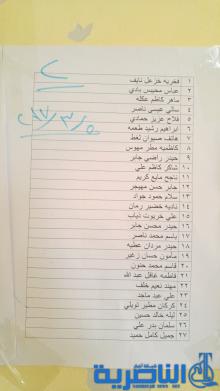 ٢
٢٠١٧/٣/٥
١ فخرية خزعل نايف
٢ عباس محيبس بادي
٣ ماهر كاظم عكله
٤ سالي عيسى ناصر
٥ فلاح عزيز حمادي
٦ ابراهيم رشيد طعمه
٧ هاتف صبوان لفط
٨ كاظميه مطر مهوس
٩ حيدر راضي جابر
١٠ شاكر كاظم علي
١١ ناجح مايع كريم
١٢ جابر حسن مهيجر
١٣ سلام حمود جواد
١٤ ناديه خضير رمان
١٥ علي خريوت ذياب
١٦ حيدر محسن جابر
١٧ باسم محمد ناصر
١٨ حيدر مردان عطيه
١٩ مأمون حسان زغير
٢٠ قاسم محمد حنون
٢١ فاطمه غافل عبد الله
٢٢ مهند نعيم خلف
٢٣ علي عبد ماجد
٢٤ كركان مطير نويلي
٢٥ ليله خالد حسين
٢٦ سلمان بدر علي
٢٧ جميل كامل حميد
الناصرية